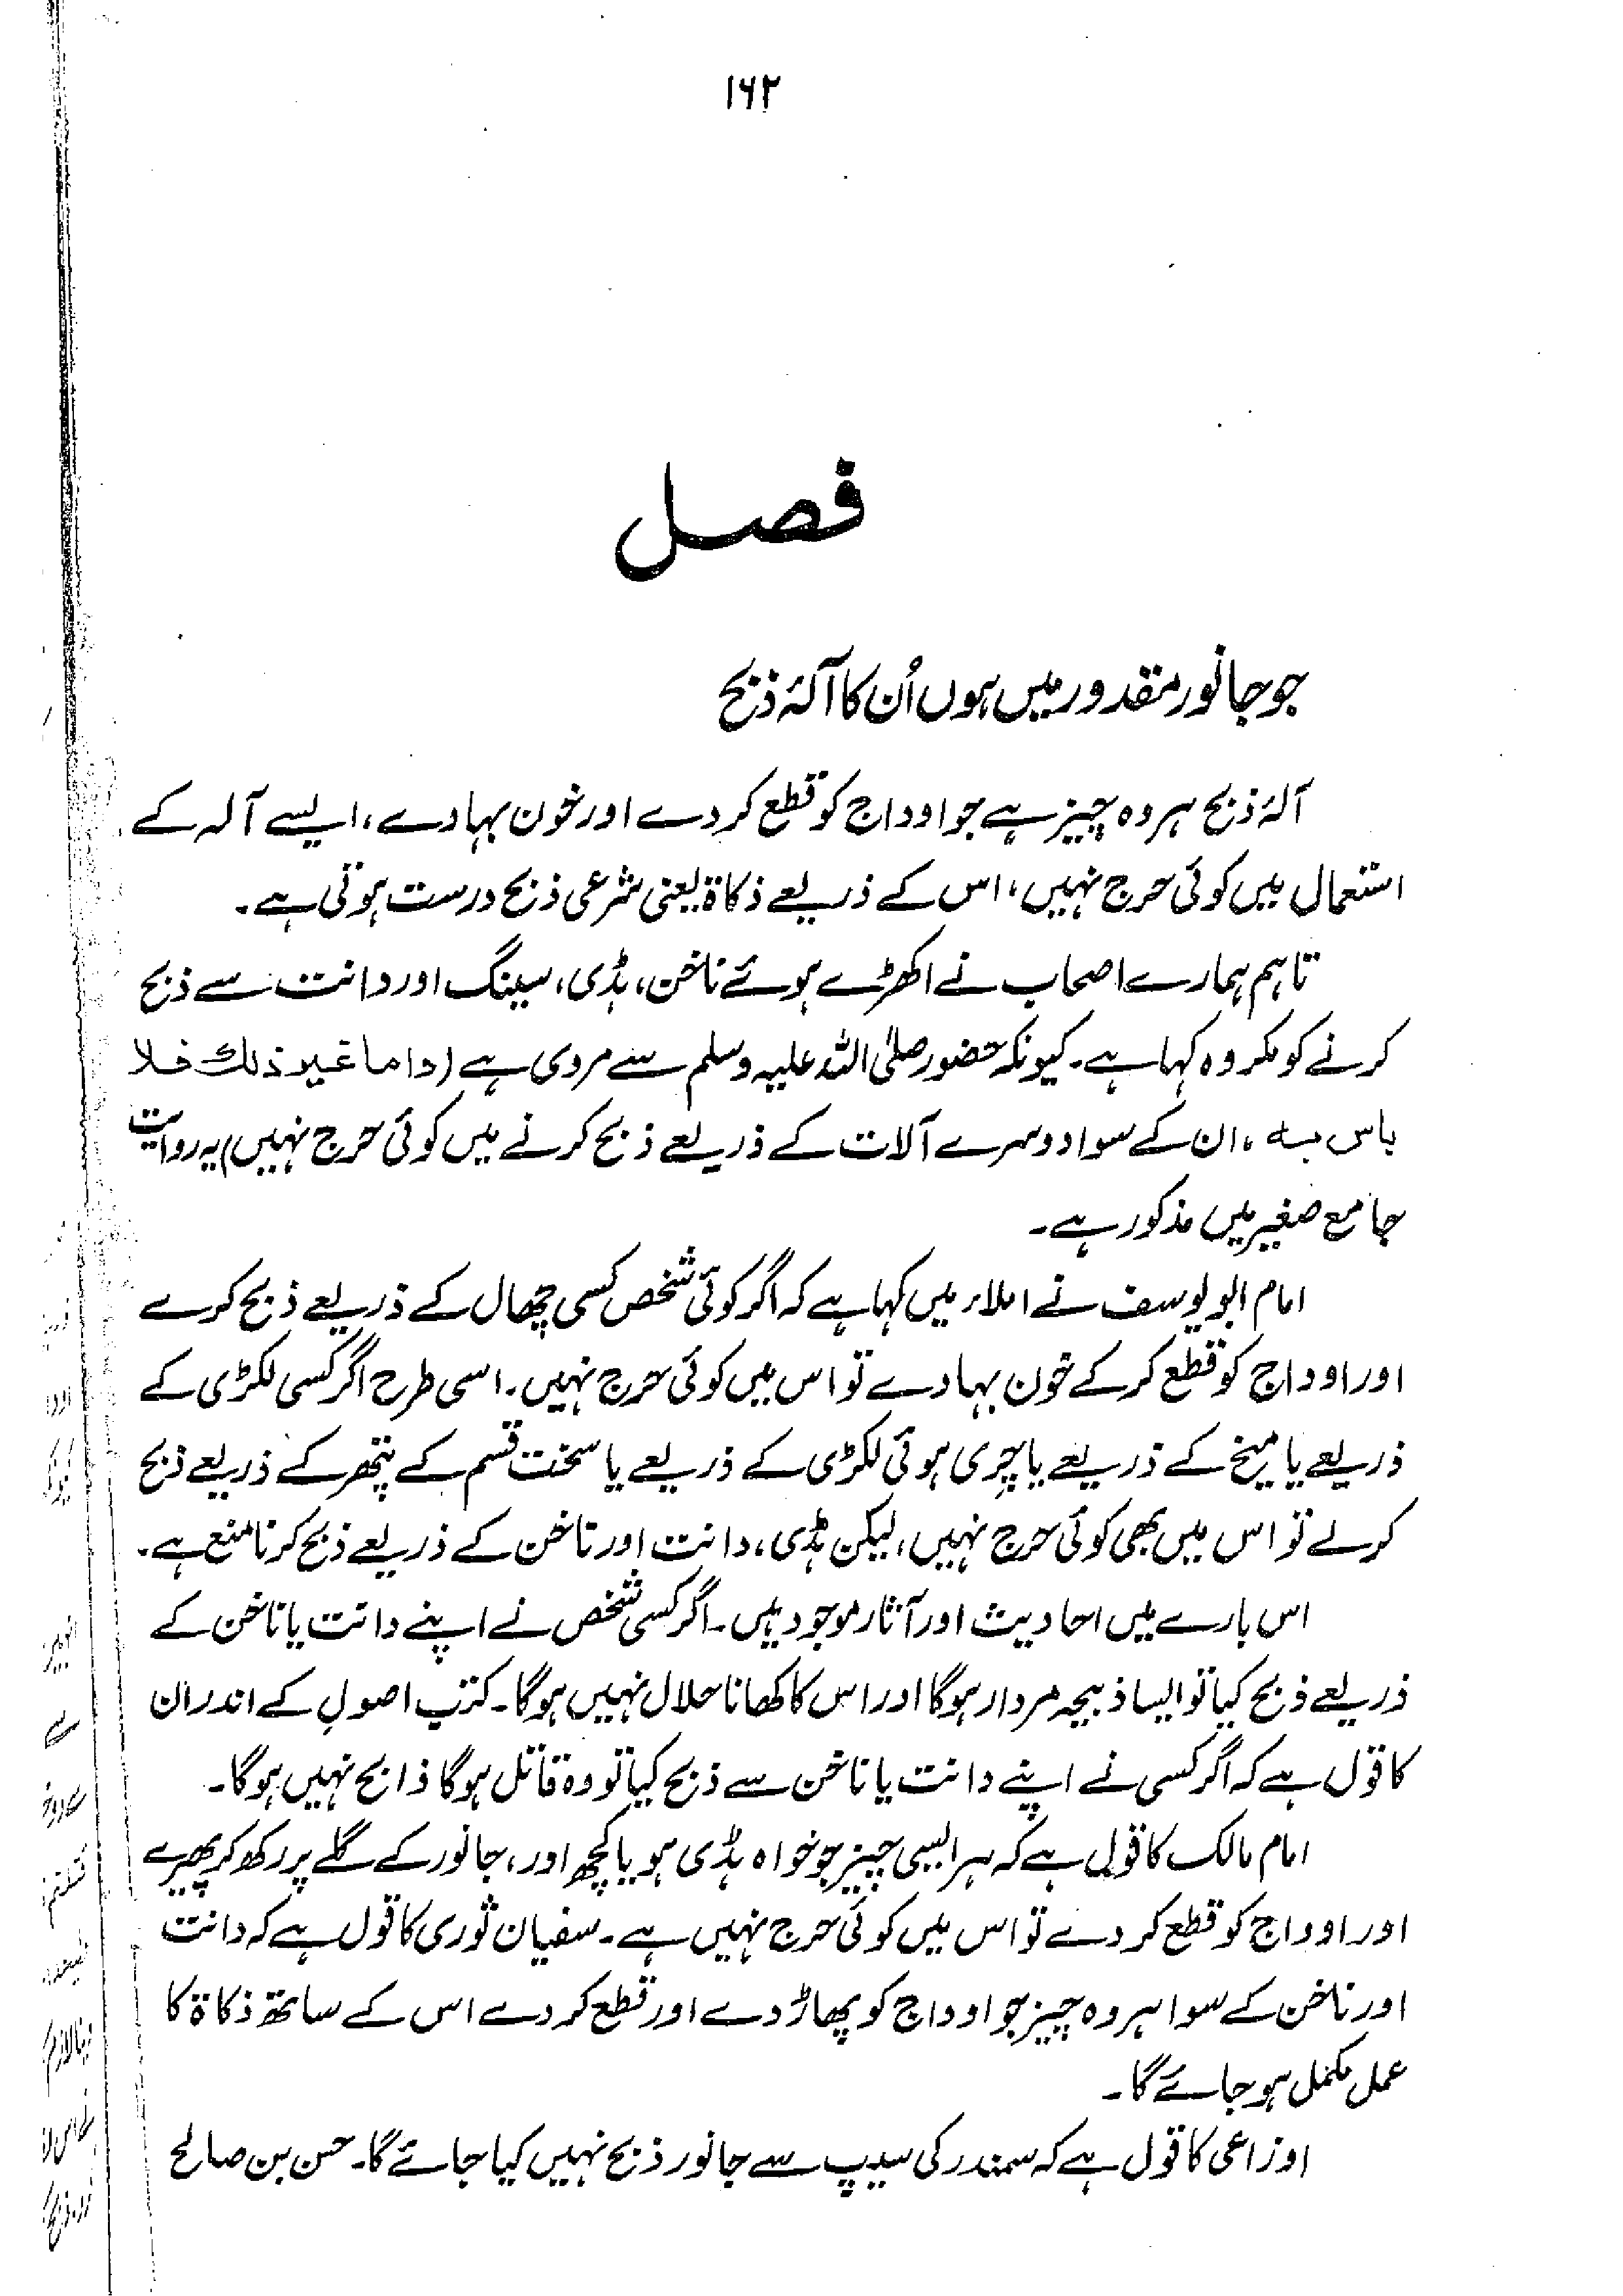 ۱۶۲
فصل
جو جانور مقدور میں ہوں اُن کا آلۂ ذبح
آلۂ ذبح ہر وہ چیز ہے جو اوداج کو قطع کر دے اور خون بہا دے، ایسے آلہ کے
استعمال میں کوئی حرج نہیں، اس کے ذریعے ذکاۃ یعنی شرعی ذبح درست ہوتی ہے۔
تاہم ہمارے اصحاب نے اکھڑے ہوئے ناخن، ہڈی، سینگ اور دانت سے ذبح
کرنے کو مکروہ کہا ہے۔ کیونکہ حضور صلی اللہ علیہ وسلم سے مروی ہے (داما غیر ذلك فلا
باس به، ان کے سوا دوسرے آلات کے ذریعے ذبح کرنے میں کوئی حرج نہیں) یہ روایت
جامع صغیر میں مذکور ہے۔
امام ابو یوسف نے املاء میں کہا ہے کہ اگر کوئی شخص کسی چھال کے ذریعے ذبح کرے
اور اوداج کو قطع کر کے خون بہا دے تو اس میں کوئی حرج نہیں۔ اسی طرح اگر کسی لکڑی کے
ذریعے یا میخ کے ذریعے یا چری ہوئی لکڑی کے ذریعے یا سخت قسم کے پتھر کے ذریعے ذبح
کرلے تو اس میں بھی کوئی حرج نہیں، لیکن ہڈی، دانت اور ناخن کے ذریعے ذبح کرنا منع ہے۔
اس بارے میں احادیث اور آثار موجود ہیں۔ اگر کسی شخص نے اپنے دانت یا ناخن کے
ذریعے ذبح کیا تو ایسا ذبیحہ مردار ہوگا اور اس کا کھانا حلال نہیں ہوگا۔ کتبِ اصول کے اندر ان
کا قول ہے کہ اگر کسی نے اپنے دانت یا ناخن سے ذبح کیا تو وہ قاتل ہوگا ذابح نہیں ہوگا۔
امام مالک کا قول ہے کہ ہر ایسی چیز جو خواہ ہڈی ہو یا کچھ اور، جانور کے گلے پر رکھ کر پھیرے
اور اوداج کو قطع کر دے تو اس میں کوئی حرج نہیں ہے۔ سفیان ثوری کا قول ہے کہ دانت
اور ناخن کے سوا ہر وہ چیز جو اوداج کو پھاڑ دے اور قطع کر دے اس کے ساتھ ذکاۃ کا
عمل مکمل ہو جائے گا۔
اوزاعی کا قول ہے کہ سمندر کی سیپ سے جانور ذبح نہیں کیا جائے گا۔ حسن بن صالح